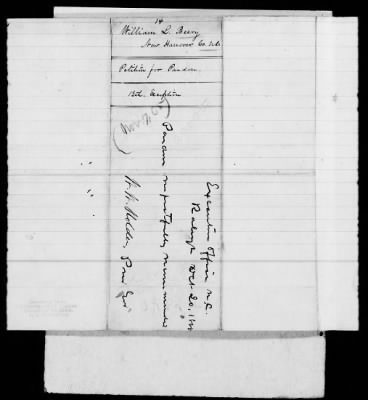 14
William L. Beery
New Hanover Co. N.C.
Petition for Pardon.
13th. Exception
Executive Office N.C.
Raleigh Oct. 20, 
Pardon respectfully recommended
W. W. Holden,
Prov. Gov